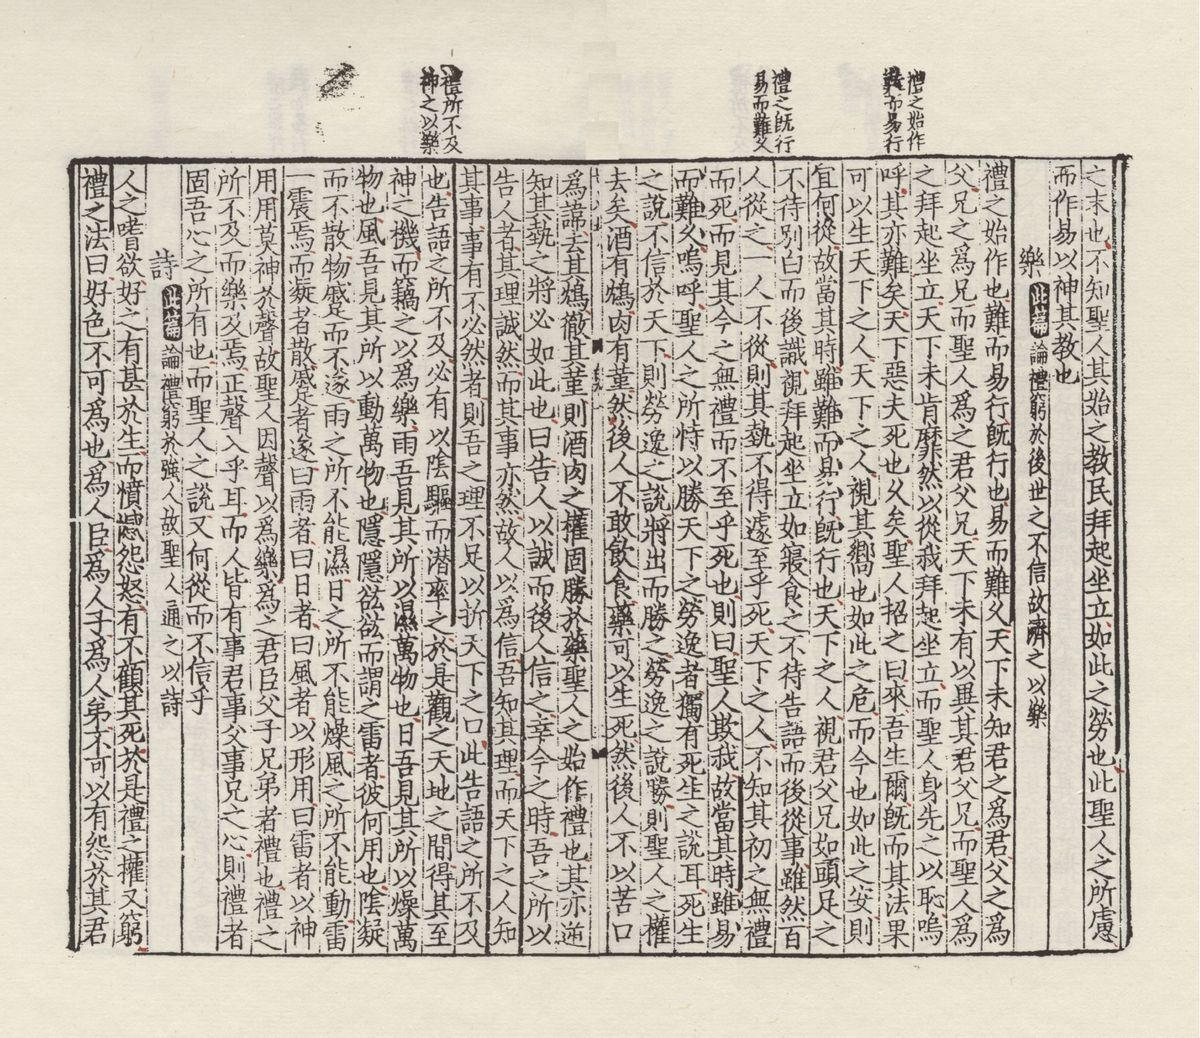 禮之始作
難而易行
禮之既行
易而難久
禮所不及
神之以樂
之末也不知聖人其始之教民拜起坐立如此之勞也此聖人之所慮
而作易以神其教也
樂 此篇 論禮窮於後世之不信故濟之以樂
禮之始作也難而易行既行也易而難久天下未知君之為君父之為
父兄之為兄而聖人為之君父兄天下未有以異其君父兄而聖人為
之拜起坐立天下未肯靡然以從我拜起坐立而聖人身先之以恥嗚
呼其亦難矣天下惡夫死也久矣聖人招之曰來吾生爾既而其法果
可以生天下之人天下之人視其嚮也如此之危而今也如此之安則
宜何從故當其時雖難而易行既行也天下之人視君父兄如頭足之
不待別白而後識視拜起坐立如寢食之不待告語而後從事雖然百
人從之一人不從則其埶不得遽至乎死天下之人不知其初之無禮
而死而見其今之無禮而不至乎死也則曰聖人欺我故當其時雖易
而難久嗚呼聖人之所恃以勝天下之勞逸者獨有死生之說耳死生
之說不信於天下則勞逸之說將出而勝之勞逸之說勝則聖人之權
去矣酒有鴆肉有堇然後人不敢飲食藥可以生死然後人不以苦口
為諱去其鴆徹其堇則酒肉之權固勝於藥聖人之始作禮也其亦逆
知其埶之將必如此也曰告人以誠而後人信之幸今之時吾之所以
告人者其理誠然而其事亦然故人以為信吾知其理而天下之人知
其事事有不必然者則吾之理不足以折天下之口此告語之所不及
也告語之所不及必有以陰驅而潛率之於是觀之天地之間得其至
神之機而竊之以為樂雨吾見其所以濕萬物也日吾見其所以燥萬
物也風吾見其所以動萬物也隱隱谹谹而謂之雷者彼何用也陰凝
而不散物蹙而不遂雨之所不能濕日之所不能燥風之所不能動雷
一震焉而凝者散蹙者遂曰雨者曰日者曰風者以形用曰雷者以神
用用莫神於聲故聖人因聲以為樂為之君臣父子兄弟者禮也禮之
所不及而樂及焉正聲入乎耳而人皆有事君事父事兄之心則禮者
固吾心之所有也而聖人之說又何從而不信乎
詩 此篇 論禮窮於強人故聖人通之以詩
人之嗜欲好之有甚於生而憤憾怨怒有不顧其死於是禮之權又窮
禮之法曰好色不可為也為人臣為人子為人弟不可以有怨於其君